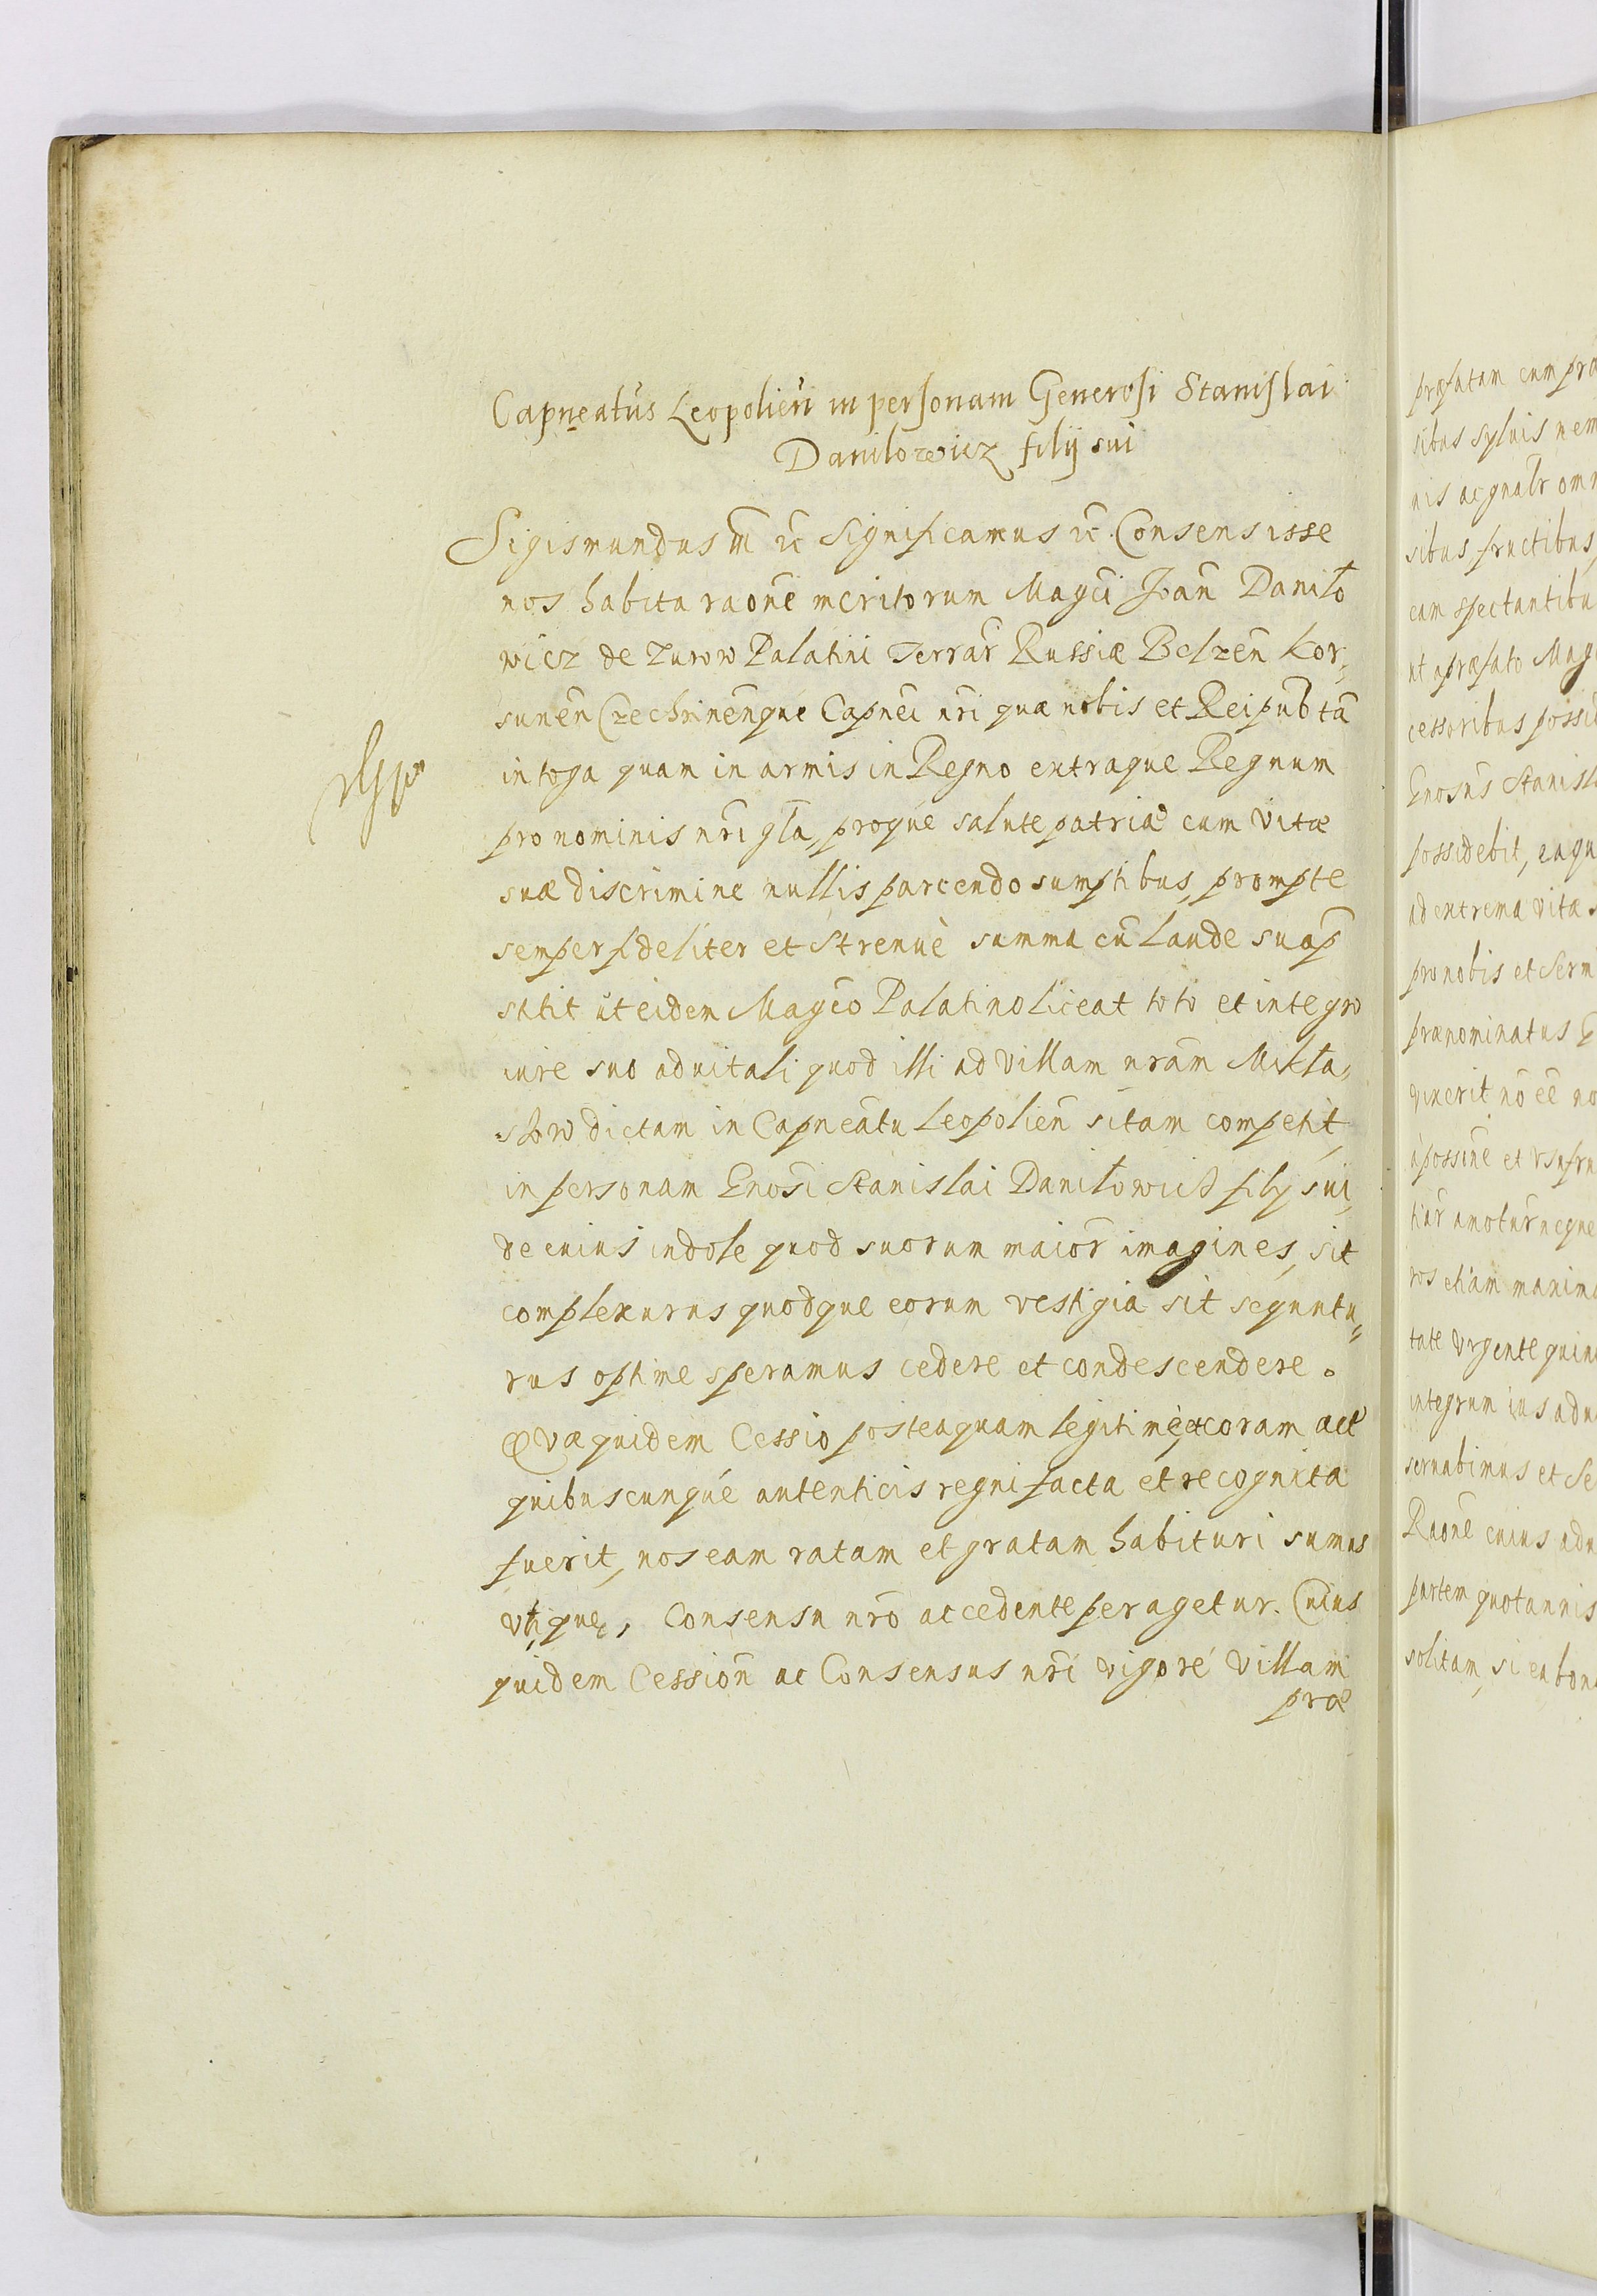 Capneatus Leopolien in personam Generosi Stanislai
Danilowicz filij sui
Sigismundus III etc Significamus etc. Consensisse
nos habita raone meritorum Magci Joan Daniło
wicz de Zurow Palatini Terrar Russiæ Belzen Kor,
sunen Czechrinenque Capnei nri quæ nobis et Reipub ta
in toga quam in armis in Regno extraque Regnum
pro nominis nri gla, proque salute patriæ cum vitæ
suæ discrimine nullis parcendo sumptibus, prompte
semper fideliter et Strenuè summa cu laude suap
stitit ut eidem Magco Palatino liceat toto et integro
iure suo aduitali quod illi ad Villam nram Mikła,
szow dictam in Capneatu Leopolien sitam competit,
in personam Gnosi Stanislai Daniłowicz filij sui,
de cuius indole quod suorum maior imagines, sit
complexurus quodque eorum vestigia sit sequutu"
rus optime speramus cedere et condescendere.
Quæ quidem Cessio posteaquam legitimè et coram act
quibuscunque autenticis regni facta et recognita
fuerit, nos eam ratam et gratam habituri sumus
vtique, Consensu nro accedente peragetur. Cuius
quidem Cession ac Consensus nri vigore Villam
præ
præfatam cum præ
sibus syluis nem
nis ac gnalr omn
sibus fructibus,
eam spectantibu
ut a præfato Mag
cessoribus possi
Gnosus Stanisl
possidebit, eaqu
ad extrema vitæ s
pro nobis et Serm
prænominatus G
vixerit no ee no
a possine et vsufru
tiar amotur neque
ros etiam maxima
tate vrgente quin
integrum ius adu
seruabimus et Se
Raone cuius adu
partem quotannis
solitam, si ea bon